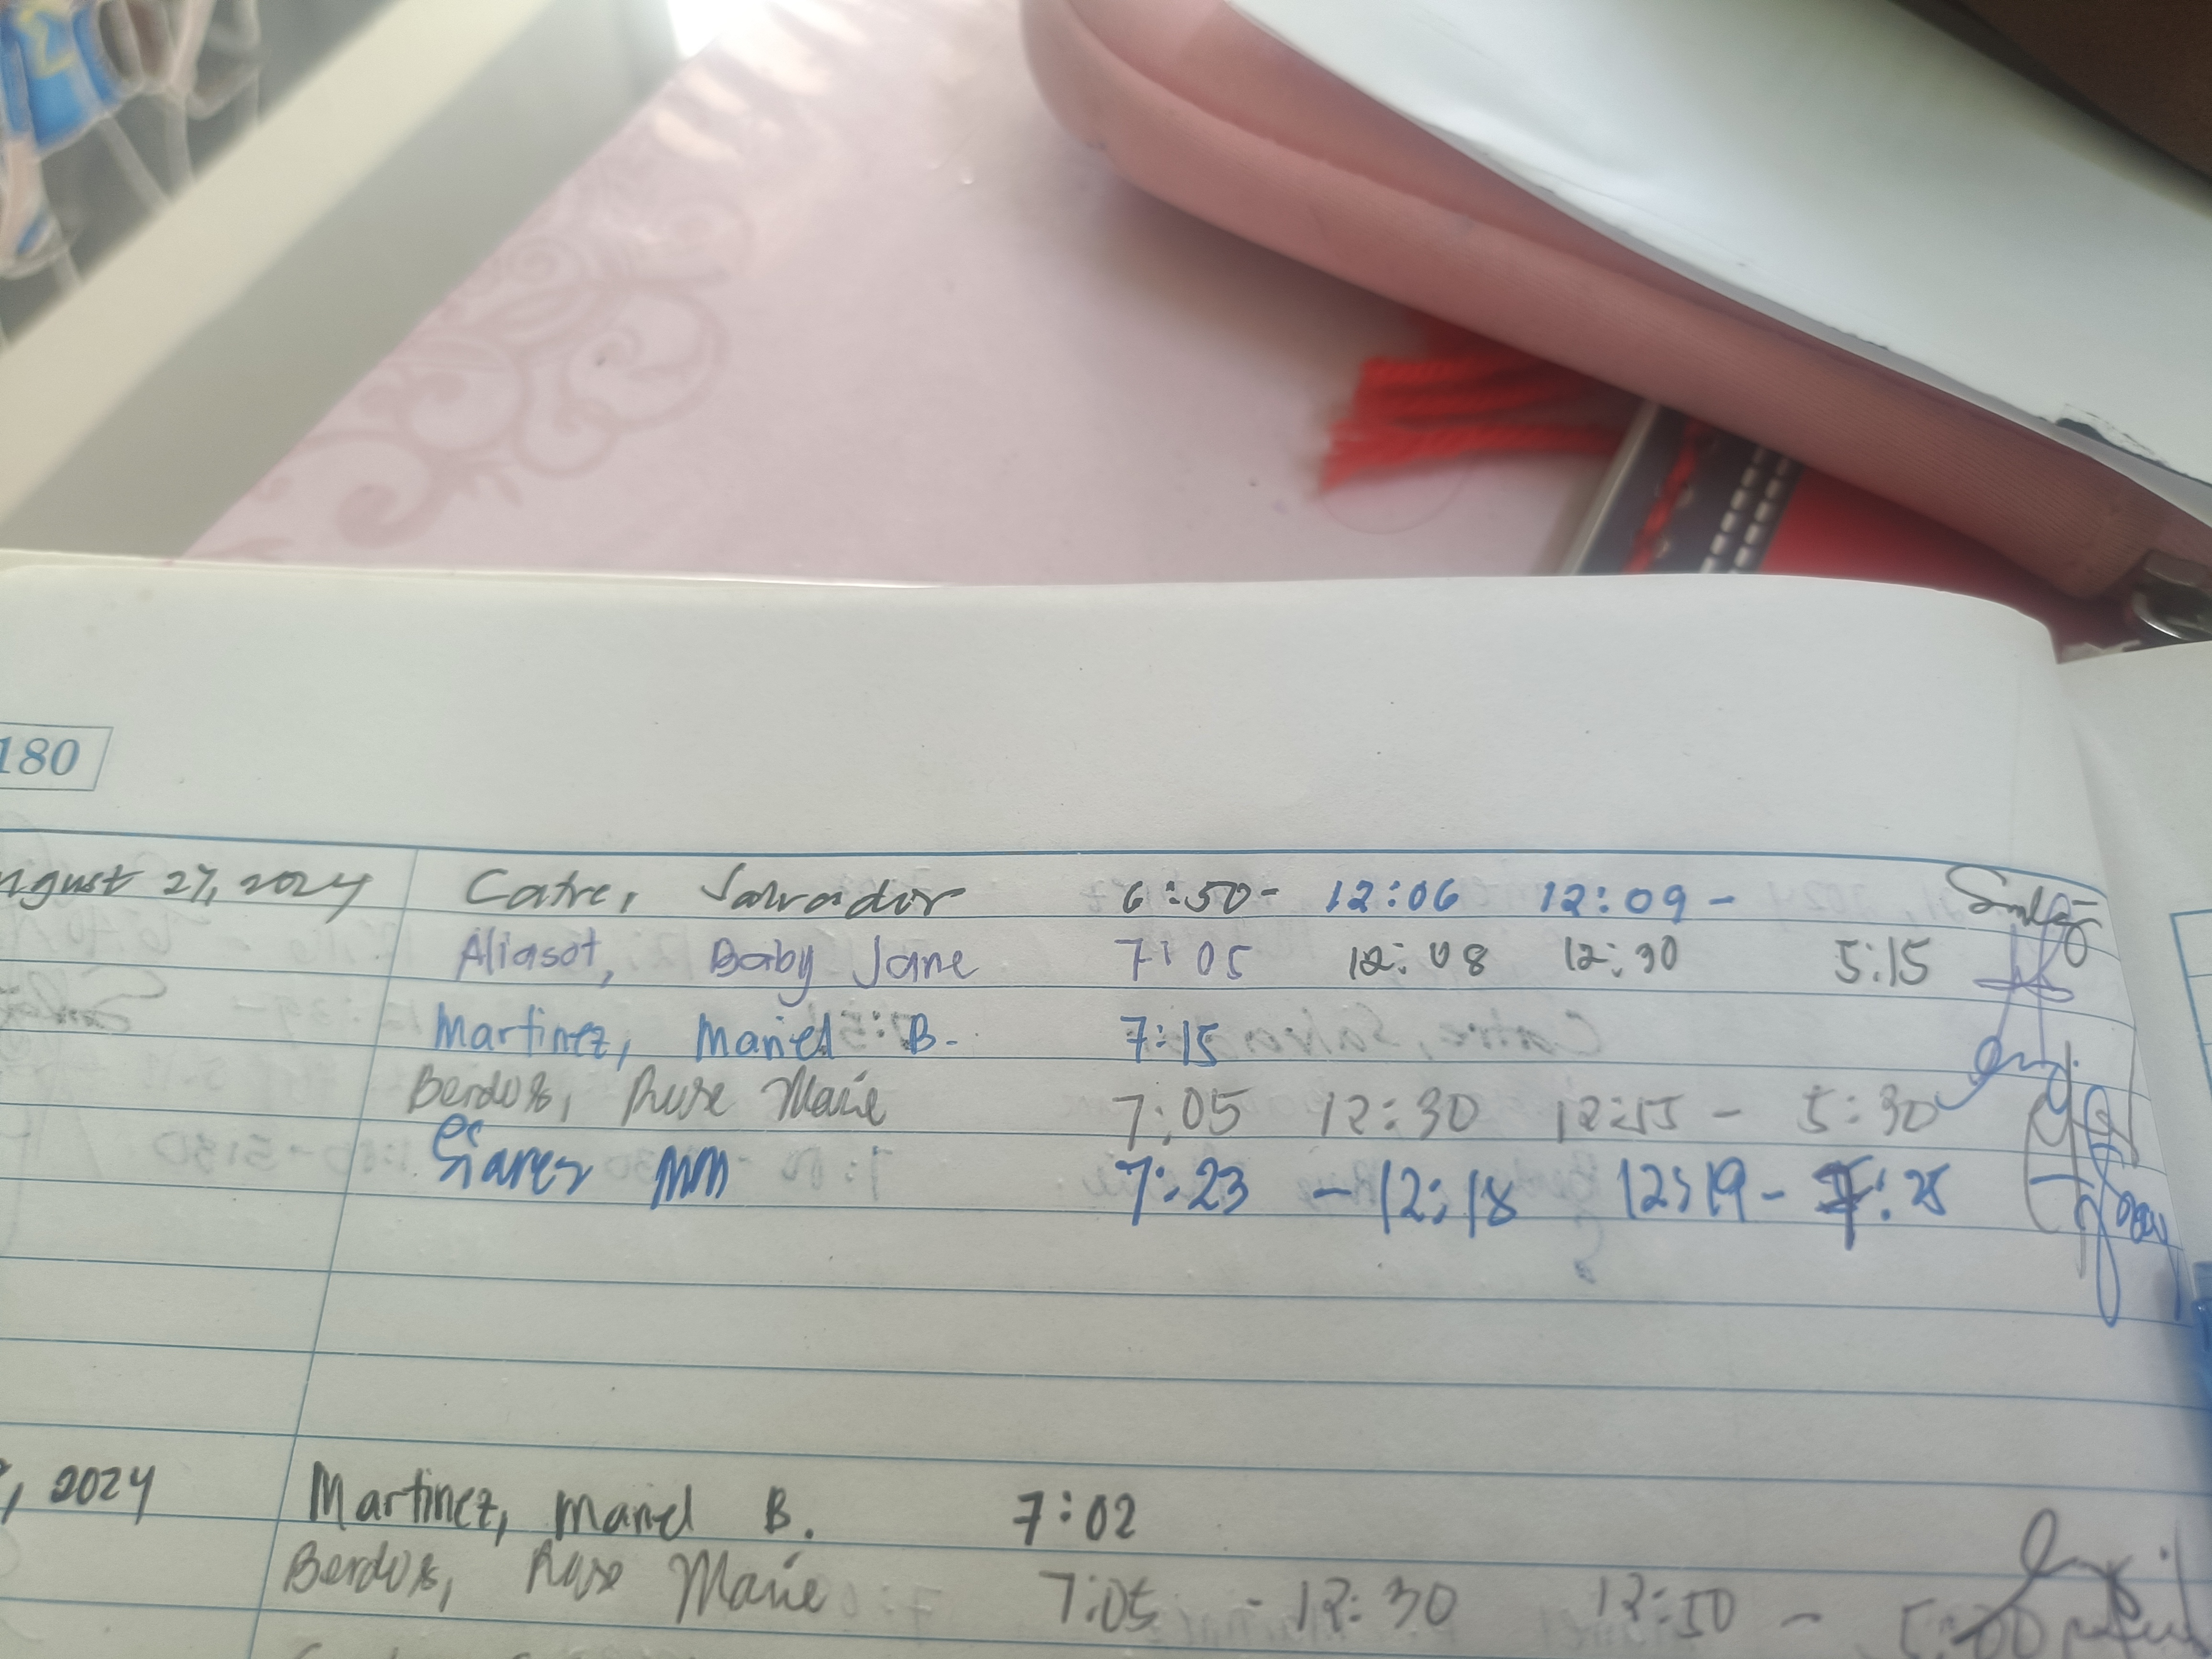 180
ugust 27, 2024 Catre, Salvador 6:50- 12:06 12:09 -
Aliasot, Baby Jane 7:05 12:08 12:30 5:15
Martinez, Mariel B. 7:15
Rose Marie 7:05 12:30 12:55 - 5:30
7:23 - 12:18 12:19 - : 25
, 2024 Martinez, Mariel B. 7:02
Rose Marie 7:05 - 12:30 12:50 - 5:00